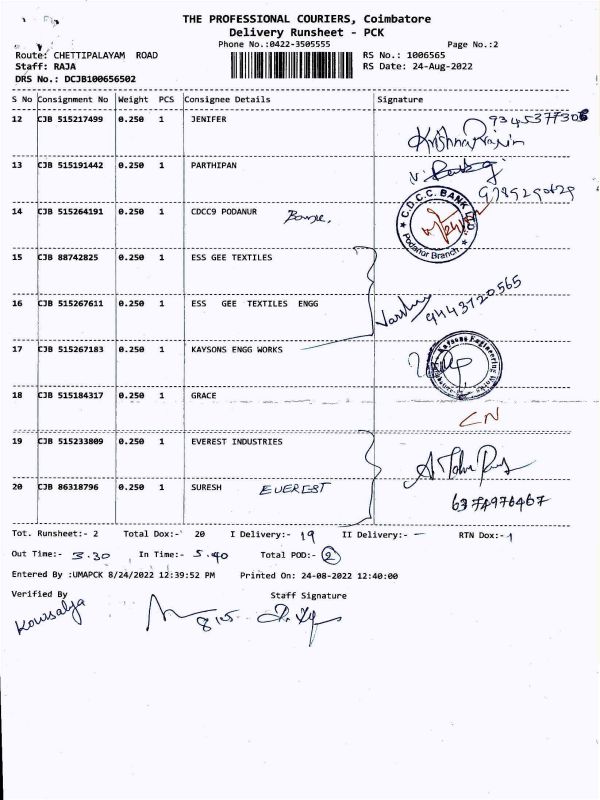 THE PROFESSIONAL COURIERS, Coimbatore
Delivery Runsheet - PCK
Phone No.:0422-3505555 Page No.:2
Route: CHETTIPALAYAM ROAD RS No.: 1006565
Staff: RAJA RS Date: 24-Aug-2022
DRS No.: DCJB100656502
S No Consignment No Weight PCS Consignee Details Signature
12 CJB 515217499 0.250 1 JENIFER 9345377306
13 CJB 515191442 0.250 1 PARTHIPAN
14 CJB 515264191 0.250 1 CDCC9 PODANUR C.D.C.C. BANK LTD. Podanur Branch
15 CJB 88742825 0.250 1 ESS GEE TEXTILES
16 CJB 515267611 0.250 1 ESS GEE TEXTILES ENGG 9443120565
17 CJB 515267183 0.250 1 KAYSONS ENGG WORKS Kaysons Engineering Works
18 CJB 515184317 0.250 1 GRACE CN
19 CJB 515233809 0.250 1 EVEREST INDUSTRIES
20 CJB 86318796 0.250 1 SURESH EVEREST 6374976467
Tot. Runsheet:- 2 Total Dox:- 20 I Delivery:- 19 II Delivery:- - RTN Dox:- 1
Out Time:- 3.30 In Time:- 5.40 Total POD:- 2
Entered By :UMAPCK 8/24/2022 12:39:52 PM Printed On: 24-08-2022 12:40:00
Verified By Staff Signature
Kowsalya